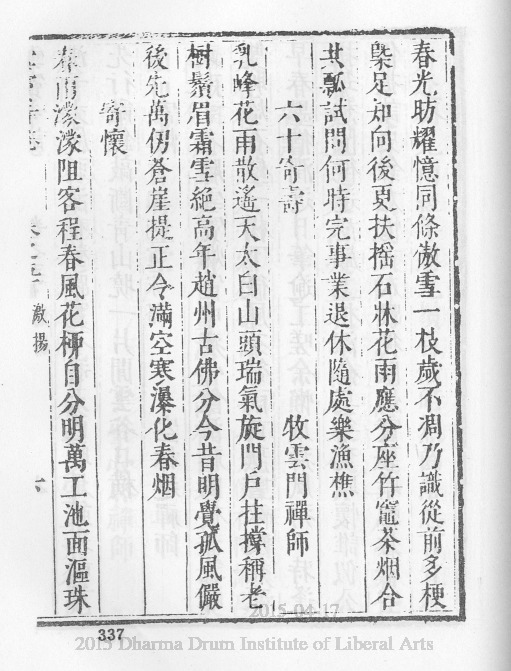 春光昉耀憶同條傲雪一枝歲不凋乃識從前多梗
槩足知向後更扶搖石牀花雨應分座竹竈茶烟合
共瓢試問何時完事業退休隨處樂漁樵
六十寄壽 牧雲門禪師
乳峰花雨散遙天太白山頭瑞氣旋門戶拄撐稱老
樹鬚眉霜雪絕高年趙州古佛分今昔明覺孤風儼
後先萬仞蒼崖提正令滿空寒瀑化春烟
寄懷
春雨濛濛阻客程春風花柳自分明萬工池面漚珠
激揚
六
337
2015-04-17
2015 Dharma Drum Institute of Liberal Arts